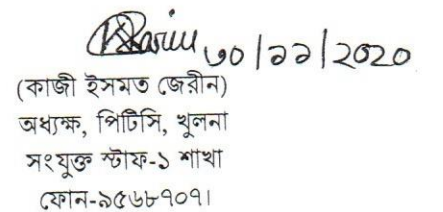 ৩০/১১/2020
(কাজী ইসমত জেরীন)
অধ্যক্ষ, পিটিসি, খুলনা
সংযুক্ত স্টাফ-১ শাখা
ফোন-৯৫৬৮৭০৭১